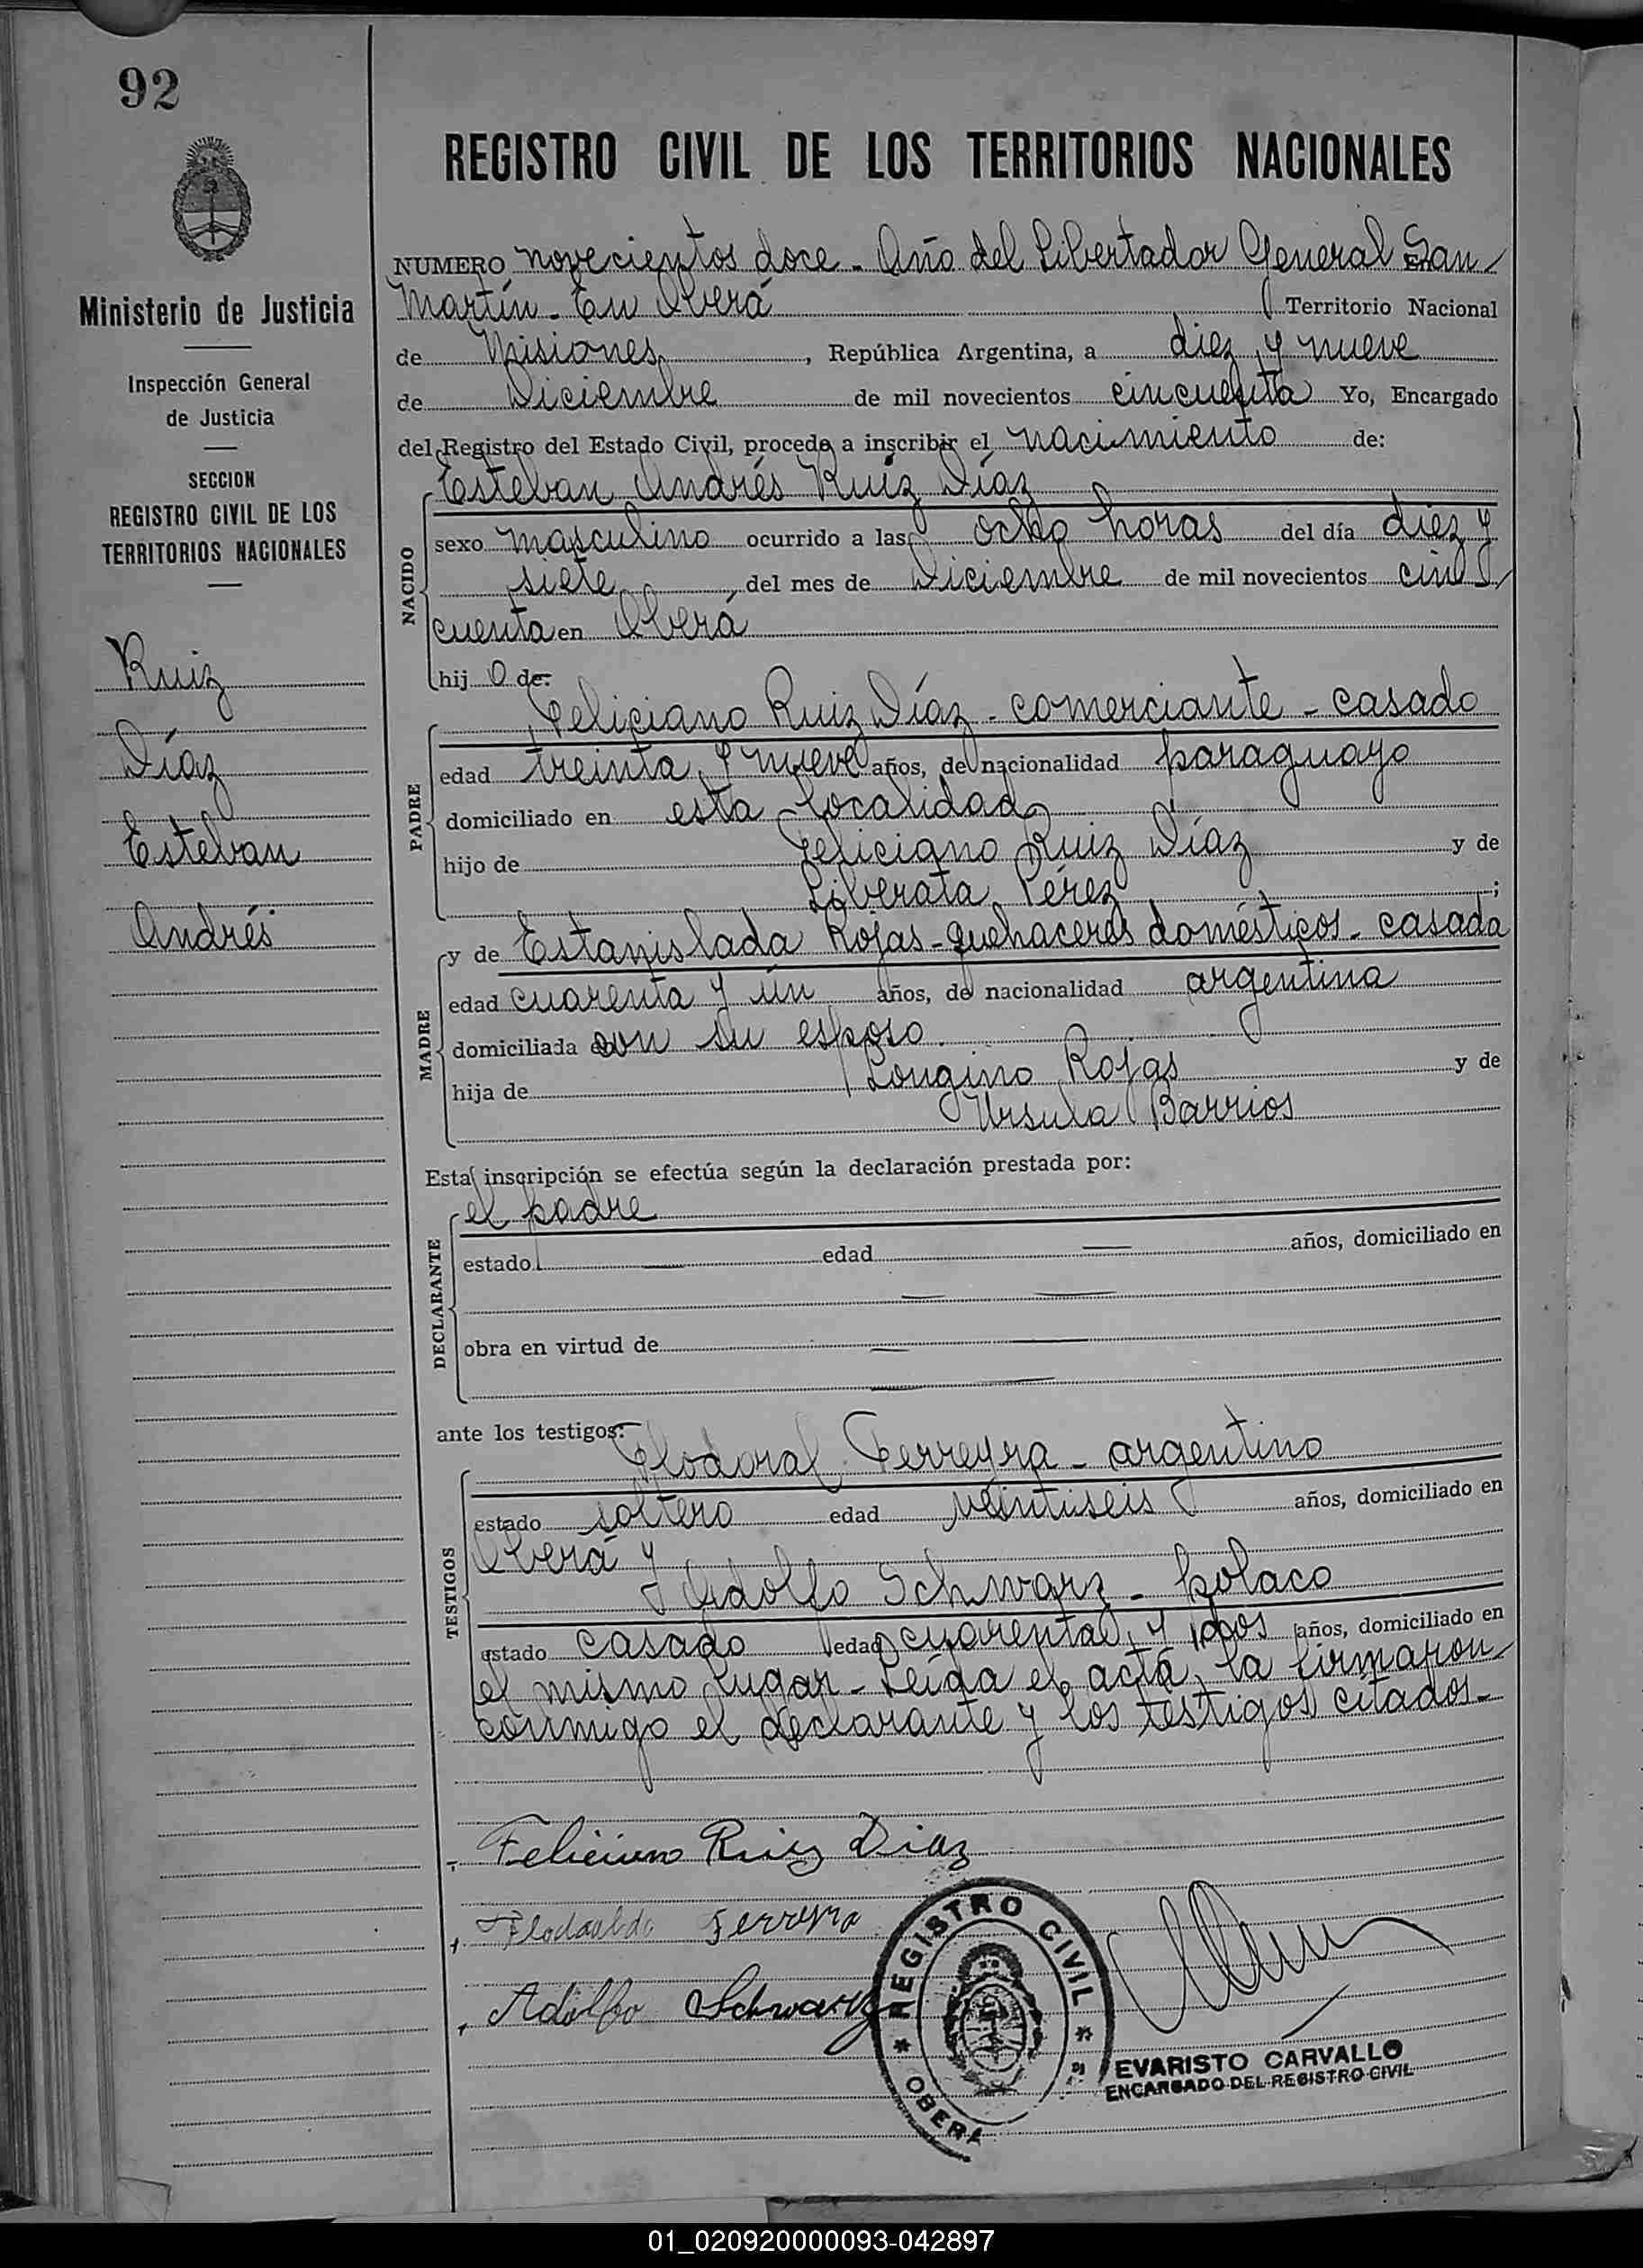 92
Ministerio de Justicia
Inspección General
de Justicia
SECCION
REGISTRO CIVIL DE LOS
TERRITORIOS NACIONALES
Ruiz
Díaz
Esteban
Andrés
REGISTRO CIVIL DE LOS TERRITORIOS NACIONALES
NUMERO novecientos doce - Año del Libertador General San
Martín - En Oberá Territorio Nacional
de Misiones, República Argentina, a diez y nueve
de Diciembre de mil novecientos cincuenta Yo, Encargado
del Registro del Estado Civil, procedo a inscribir el nacimiento de:
Esteban Andrés Ruiz Díaz
NACIDO
sexo masculino ocurrido a las ocho horas del día diez y
siete, del mes de Diciembre de mil novecientos cin
cuenta en Oberá
hij o de:
PADRE
Feliciano Ruiz Díaz - comerciante - casado
edad treinta y nueve años, de nacionalidad paraguayo
domiciliado en esta localidad
hijo de Feliciano Ruiz Díaz y de
Liberata Pérez ;
MADRE
y de Estanislada Rojas - quehaceres domésticos - casada
edad cuarenta y ún años, de nacionalidad argentina
domiciliada con su esposo.
hija de Longino Rojas y de
Ursula Barrios
Esta inscripción se efectúa según la declaración prestada por:
DECLARANTE
el padre
estado — edad — años, domiciliado en
— —
obra en virtud de — —
—
ante los testigos:
TESTIGOS
Flodoval Ferreyra - argentino
estado soltero edad veintiseis años, domiciliado en
Oberá y
Adolfo Schwarz - polaco
estado casado edad cuarenta y dos años, domiciliado en
el mismo lugar - Leída el acta, la firmaron
conmigo el declarante y los testigos citados -
Feliciano Ruiz Diaz
Ferreyra
Adolfo Schwarz
REGISTRO CIVIL
OBERÁ
EVARISTO CARVALLO
ENCARGADO DEL REGISTRO CIVIL
01_020920000093-042897